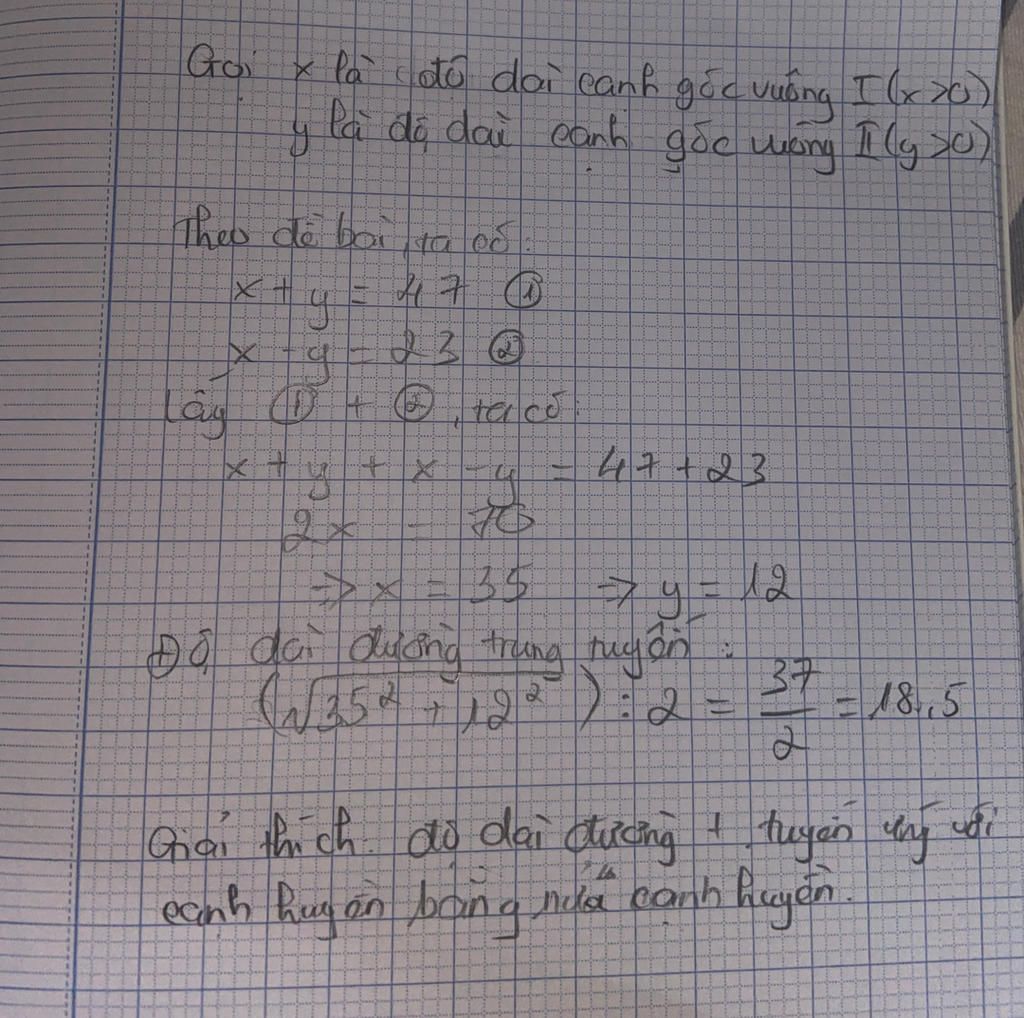 Gọi x là độ dài cạnh góc vuông I (x>0)
y là độ dài cạnh góc vuông II (y>0)
Theo đề bài, ta có:
x + y = 47 ①
x - y = 23 ②
Lấy ① + ②, ta có:
x + y + x - y = 47 + 23
2x = 70
=> x = 35 => y = 12
Độ dài đường trung tuyến:
(√35² + 12²) : 2 = 37/2 = 18,5
Giải thích: độ dài đường t tuyến ứng với
cạnh huyền bằng nửa cạnh huyền.